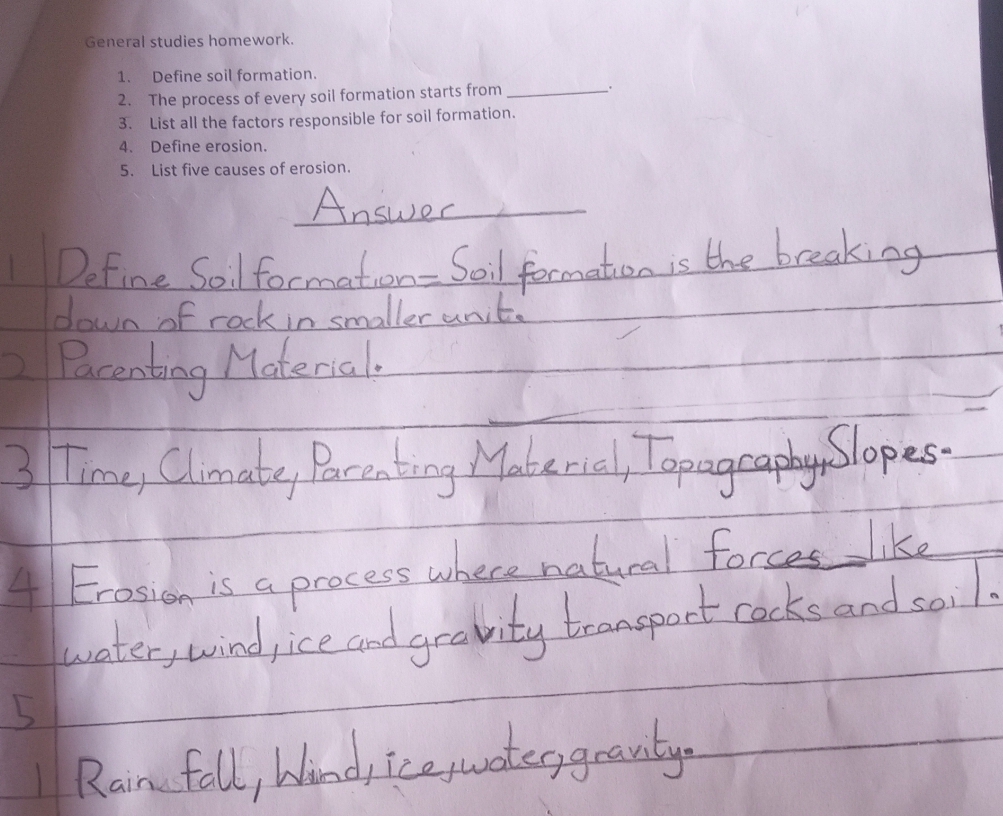 General studies homework.
1. Define soil formation.
2. The process of every soil formation starts from __________.
3. List all the factors responsible for soil formation.
4. Define erosion.
5. List five causes of erosion.
Answer
1 Define Soil formation= Soil formation is the breaking
down of rock in smaller unit.
2 Parenting Material.
3 Time, Climate, Parenting Material, Topography, Slopes.
4 Erosion is a process where natural forces like
water, wind, ice and gravity transport rocks and soil.
5
1 Rain fall, Wind, ice, water, gravity.